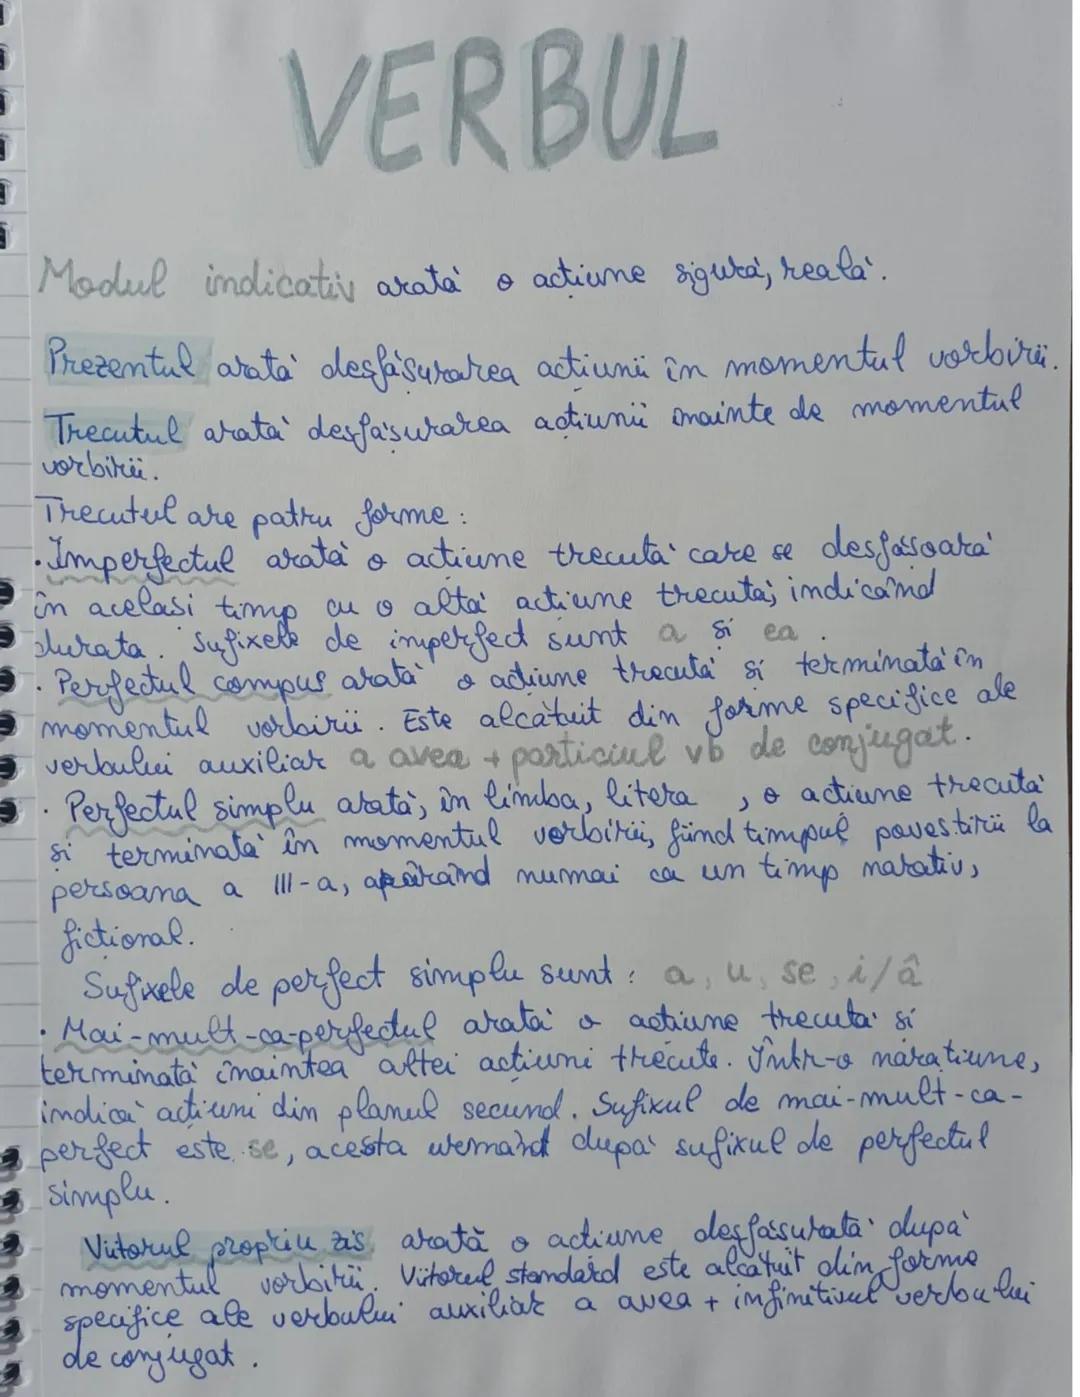 VERBUL
Modul indicativ arată o acțiune sigură, reală.
Prezentul arată desfășurarea acțiunii în momentul vorbirii.
Trecutul arată desfășurarea acțiunii înainte de momentul
vorbirii.
Trecutul are patru forme :
· Imperfectul arată o acțiune trecută care se desfășoară
în același timp cu o altă acțiune trecută, indicând
durata. Sufixele de imperfect sunt a și ea .
· Perfectul compus arată o acțiune trecută și terminată în
momentul vorbirii. Este alcătuit din forme specifice ale
verbului auxiliar a avea + particiul vb de conjugat.
· Perfectul simplu arată, în limba, litera , o acțiune trecută
și terminată în momentul vorbirii, fiind timpul povestirii la
persoana a III-a, apărând numai ca un timp narativ,
fictional.
Sufixele de perfect simplu sunt : a, u, se, i/â
· Mai-mult-ca-perfectul arată o acțiune trecută și
terminată înaintea altei acțiuni trecute. Într-o narațiune,
indică acțiuni din planul secund. Sufixul de mai-mult-ca-
perfect este se, acesta urmând după sufixul de perfectul
simplu.
Viitorul propriu zis arată o acțiune desfășurată după
momentul vorbirii. Viitorul standard este alcătuit din forme
specifice ale verbului auxiliar a avea + infinitivul verbului
de conjugat .